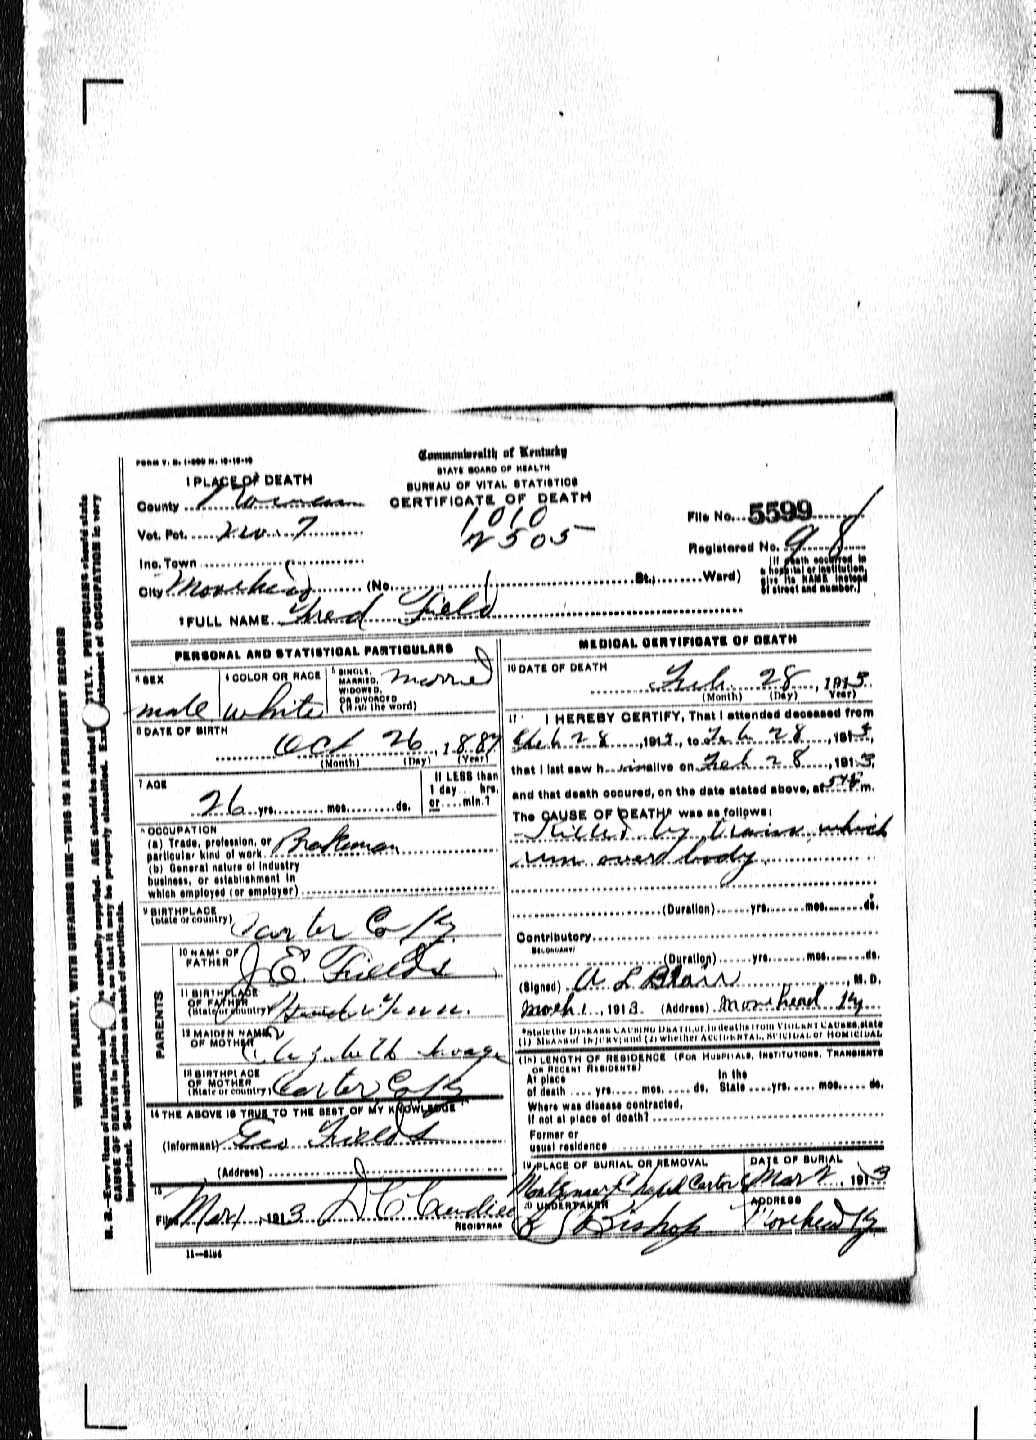 FORM V. S. 1-
Commonwealth of Kentucky
STATE BOARD OF HEALTH
BUREAU OF VITAL STATISTICS
CERTIFICATE OF DEATH
1 PLACE OF DEATH
County
Vot. Pct. No. 7
Inc. Town
City Morehead (No. St.; Ward)
1010
2505
File No. 5599
Registered No. 98
[If death occurred in a hospital or institution, give its NAME instead of street and number.]
2 FULL NAME Fred Field
PERSONAL AND STATISTICAL PARTICULARS
3 SEX male
4 COLOR OR RACE white
5 SINGLE, MARRIED, WIDOWED, OR DIVORCED (Write the word) married
6 DATE OF BIRTH
Oct 26, 1887
(Month) (Day) (Year)
7 AGE
26 yrs. mos. ds.
If LESS than 1 day hrs. or min.?
8 OCCUPATION
(a) Trade, profession, or particular kind of work Brakeman
(b) General nature of industry
business, or establishment in
which employed (or employer)
9 BIRTHPLACE
(State or country) Carter Co Ky
PARENTS
10 NAME OF FATHER J E Fields
11 BIRTHPLACE OF FATHER (State or country)
12 MAIDEN NAME OF MOTHER Elizabeth Savage
13 BIRTHPLACE OF MOTHER (State or country) Carter Co Ky
14 THE ABOVE IS TRUE TO THE BEST OF MY KNOWLEDGE
(Informant) Geo Fields
(Address)
15
Filed Mar 1, 1913 D C Caudill
REGISTRAR
11—
MEDICAL CERTIFICATE OF DEATH
16 DATE OF DEATH
Feb. 28, 1913
(Month) (Day) (Year)
17 I HEREBY CERTIFY, That I attended deceased from
Feb 28, 1913, to Feb 28, 1913,
that I last saw him alive on Feb 28, 1913,
and that death occured, on the date stated above, at m.
The CAUSE OF DEATH* was as follows:
Killed by train which
run over body
(Duration) yrs. mos. ds.
Contributory
SECONDARY
(Duration) yrs. mos. ds.
(Signed) A L Blair, M. D.
March 1, 1913 (Address) Morehead Ky
*State the DISEASE CAUSING DEATH, or, in deaths from VIOLENT CAUSES, state
(1) MEANS OF INJURY; and (2) whether ACCIDENTAL, SUICIDAL or HOMICIDAL
18 LENGTH OF RESIDENCE (FOR HOSPITALS, INSTITUTIONS, TRANSIENTS
OR RECENT RESIDENTS)
At place of death yrs. mos. ds. In the State yrs. mos. ds.
Where was disease contracted,
if not at place of death?
Former or
usual residence
19 PLACE OF BURIAL OR REMOVAL
Chapel Carter Co
DATE OF BURIAL
Mar 2, 1913
20 UNDERTAKER
Bishop
ADDRESS
Morehead Ky
WRITE PLAINLY, WITH UNFADING INK—THIS IS A PERMANENT RECORD
N. B.—Every item of information should be carefully supplied. AGE should be stated EXACTLY. PHYSICIANS should state
CAUSE OF DEATH in plain terms, so that it may be properly classified. Exact statement of OCCUPATION is very
important. See instructions on back of certificate.